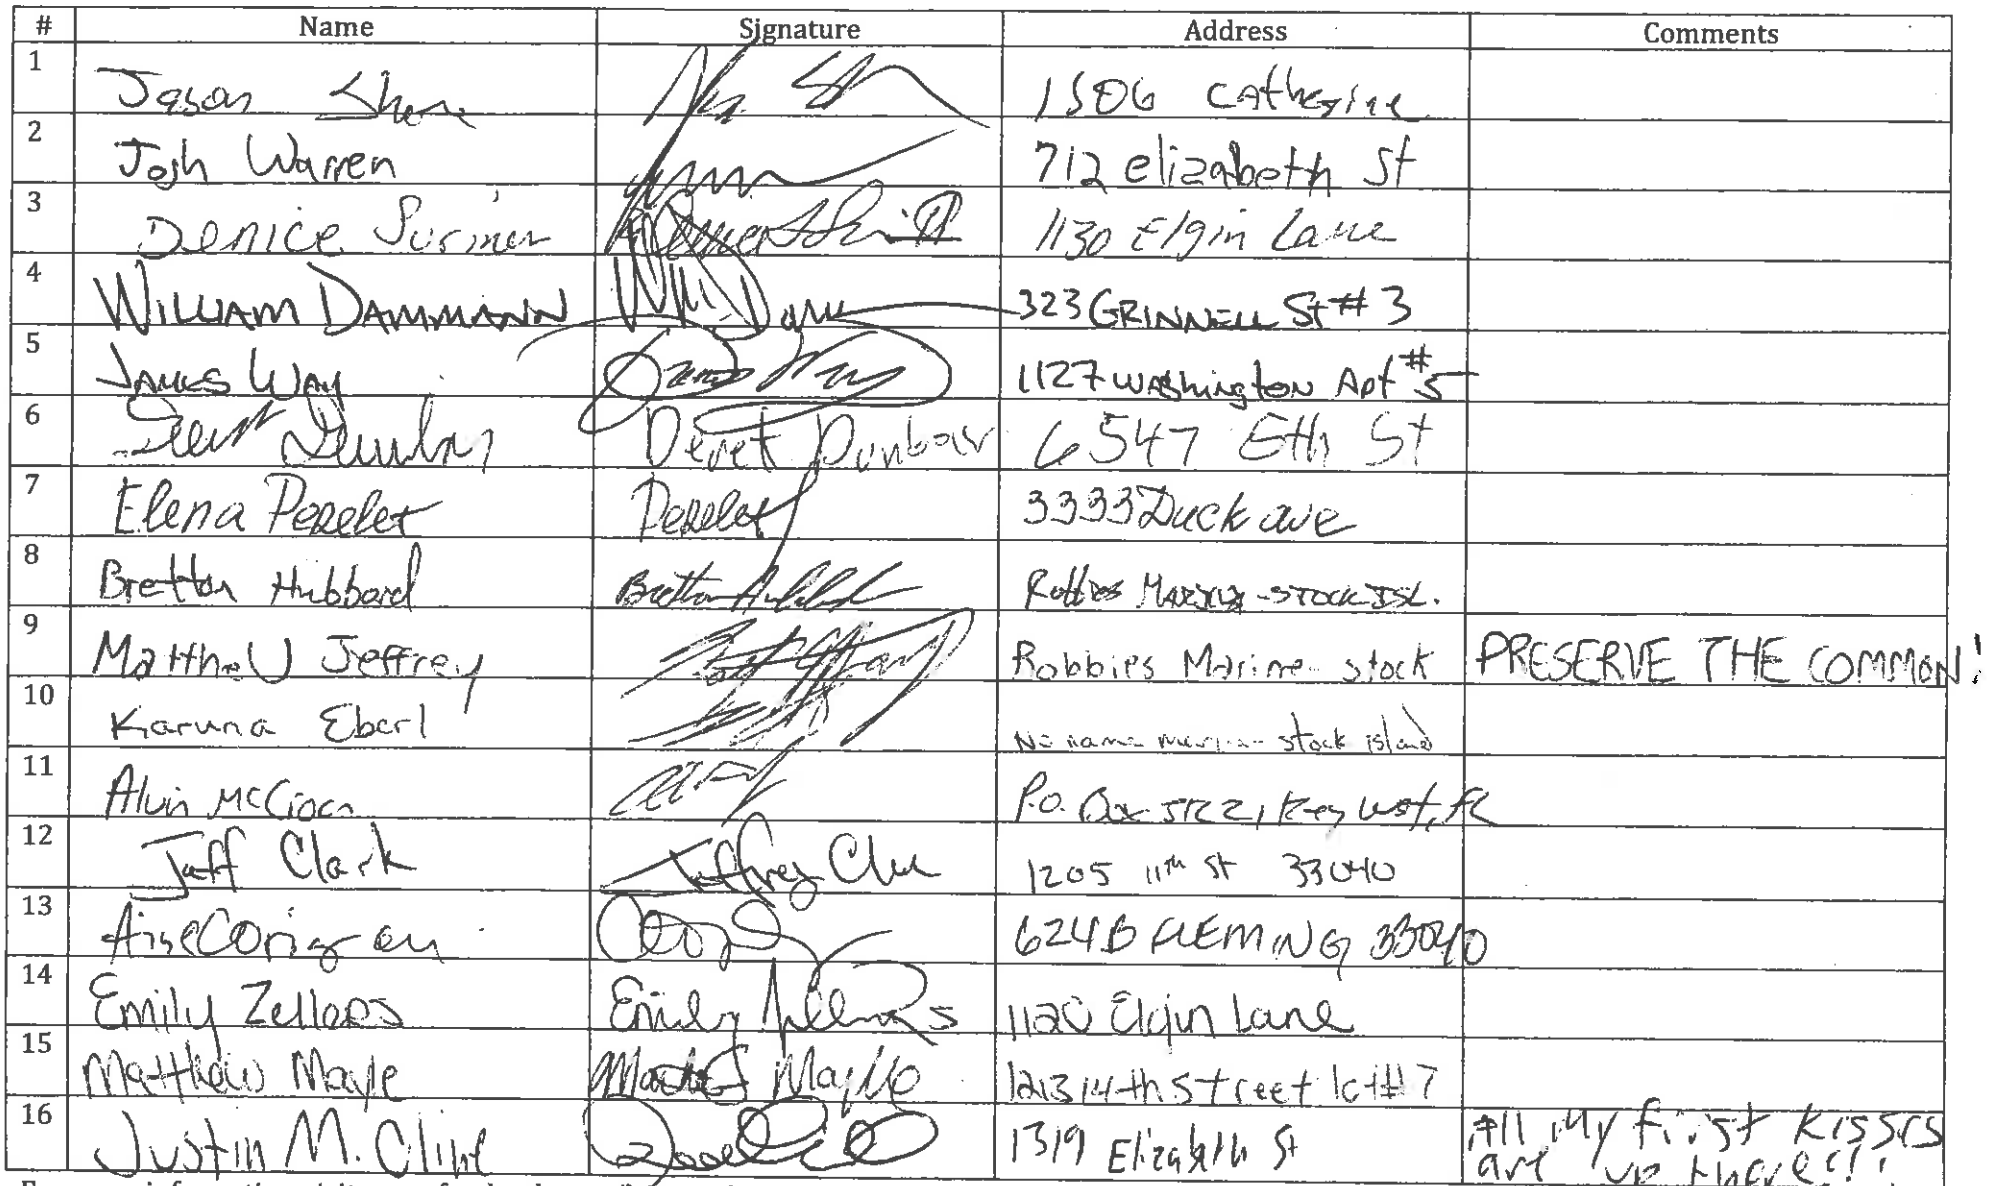 # Name Signature Address Comments
1 Jason 1506 Catherine
2 Josh Warren 712 elizabeth St
3 Denice 1130 Elgin Lane
4 WILLIAM DAMMANN 323 GRINNELL St # 3
5 JAMES WAY 1127 WAShington Apt #5
6 Deret Dunbar 6547 5th St
7 Elena Perelet Perelet 3333 Duck ave
8 Bretton Hubbard Bretton Robbies - STOCK ISL.
9 Matthew Jeffrey Robbies Marine - stock PRESERVE THE COMMON!
10 Karuna Eberl No name - stock island
11 Alvin P.O. Box Key West, FL
12 Jeff Clark Jeffrey 1205 11th St 33040
13 Corrigan 624B FLEMING 33040
14 Emily Zellers Emily Zellers 1120 Elgin Lane
15 Matthew Mayle 1213 14th Street lot #7
16 Justin M. Cline 1319 Elizabeth St All My first kisses
are up there!!